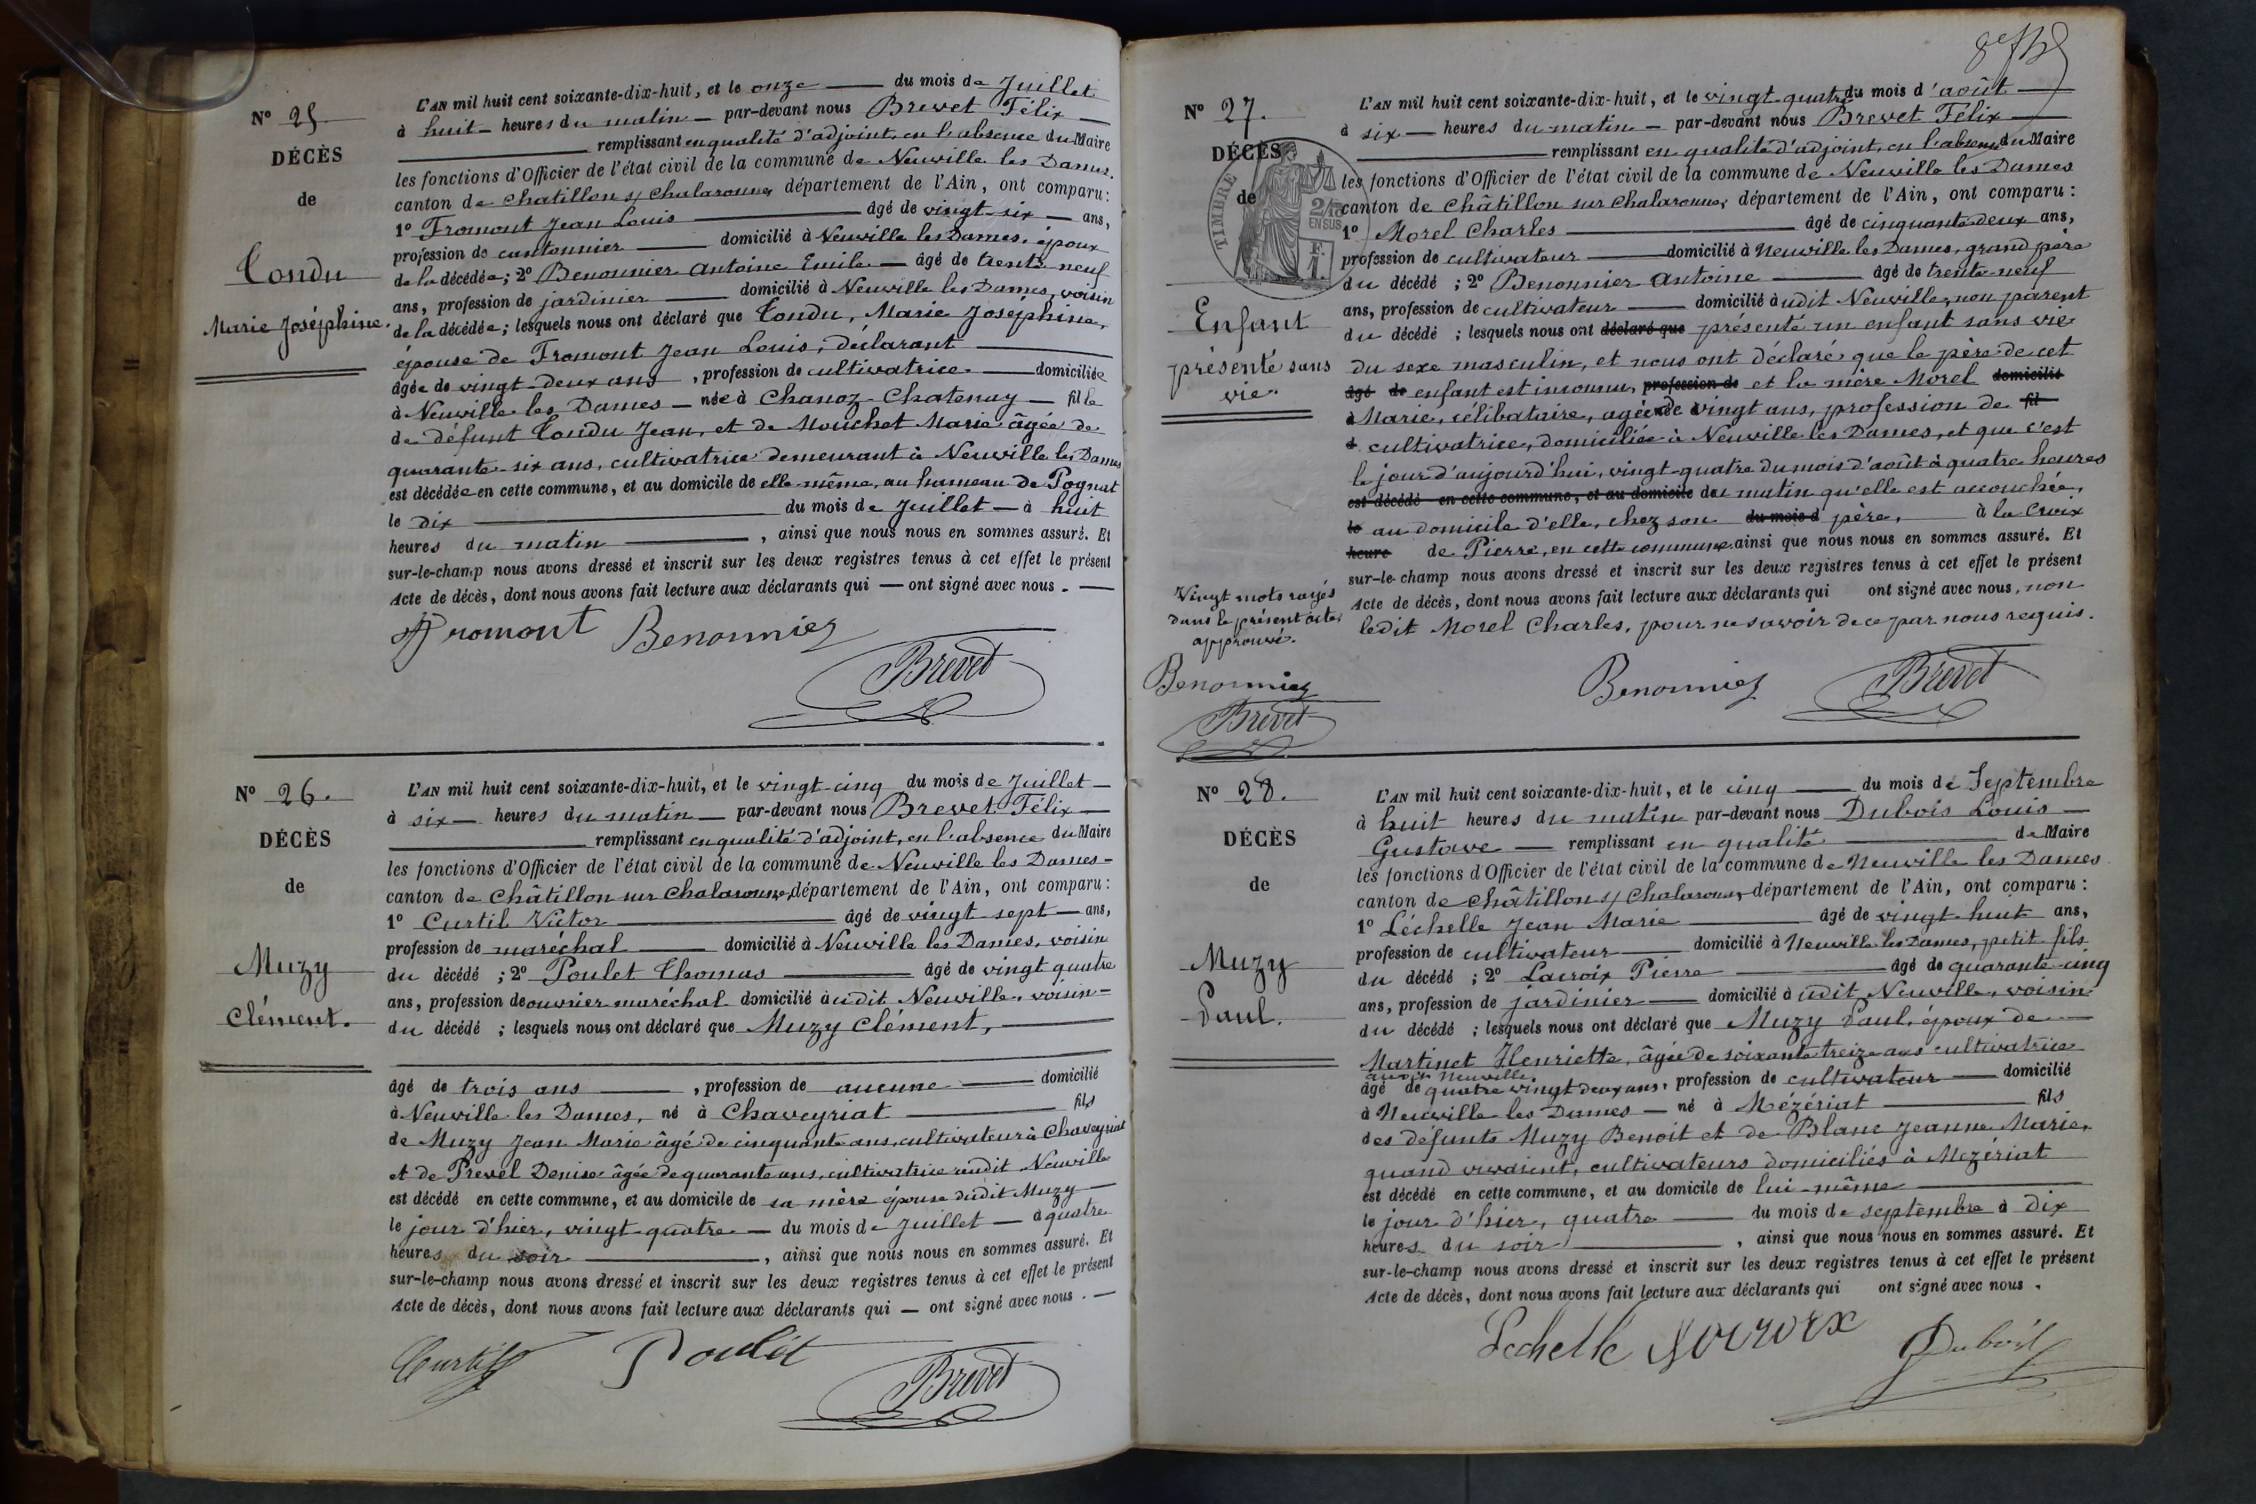 N° 25.
DÉCÈS
de
Tondu
Marie Joséphine.
L'AN mil huit cent soixante-dix-huit, et le onze du mois de Juillet
à huit heures du matin par-devant nous Brevet Félix
remplissant en qualité d'adjoint, en l'absence du Maire
les fonctions d'Officier de l'état civil de la commune de Neuville les Dames.
canton de Chatillon s/ Chalaronne, département de l'Ain, ont comparu :
1° Fromont Jean Louis âgé de vingt-six ans,
profession de cantonnier domicilié à Neuville les Dames, époux
de la décédée ; 2° Benonnier Antoine Emile âgé de trente neuf
ans, profession de jardinier domicilié à Neuville les Dames, voisin
de la décédée ; lesquels nous ont déclaré que Tondu, Marie Joséphine,
épouse de Fromont Jean Louis, déclarant
âgée de vingt-deux ans, profession de cultivatrice domiciliée
à Neuville les Dames née à Chanoz-Chatenay fille
de défunt Tondu Jean, et de Mouchet Marie âgée de
quarante-six ans, cultivatrice demeurant à Neuville les Dames
est décédée en cette commune, et au domicile de elle-même, au hameau de Pognat
le dix du mois de Juillet à huit
heures du matin, ainsi que nous nous en sommes assuré. Et
sur-le-champ nous avons dressé et inscrit sur les deux registres tenus à cet effet le présent
Acte de décès, dont nous avons fait lecture aux déclarants qui ont signé avec nous.
Fromont Benonnier
Brevet
N° 26.
DÉCÈS
de
Muzy
Clément.
L'AN mil huit cent soixante-dix-huit, et le vingt-cinq du mois de Juillet
à six heures du matin par-devant nous Brevet Félix
remplissant en qualité d'adjoint, en l'absence du Maire
les fonctions d'Officier de l'état civil de la commune de Neuville les Dames
canton de Châtillon sur Chalaronne, département de l'Ain, ont comparu :
1° Curtil Victor âgé de vingt-sept ans,
profession de maréchal domicilié à Neuville les Dames, voisin
du décédé ; 2° Poulet Thomas âgé de vingt quatre
ans, profession de ouvrier maréchal domicilié à udit Neuville, voisin
du décédé ; lesquels nous ont déclaré que Muzy Clément,
âgé de trois ans, profession de aucune domicilié
à Neuville les Dames, né à Chaveyriat fils
de Muzy Jean Marie âgé de cinquante ans, cultivateur à Chaveyriat
et de Prevel Denise âgée de quarante ans, cultivatrice audit Neuville
est décédé en cette commune, et au domicile de sa mère épouse dudit Muzy
le jour d'hier, vingt quatre du mois de Juillet à quatre
heures du soir, ainsi que nous nous en sommes assuré. Et
sur-le-champ nous avons dressé et inscrit sur les deux registres tenus à cet effet le présent
Acte de décès, dont nous avons fait lecture aux déclarants qui ont signé avec nous.
Curtil Poulet
Brevet
N° 27.
DÉCÈS
de
TIMBRE
2/10
EN SUS
Enfant
présenté sans
vie.
L'AN mil huit cent soixante-dix-huit, et le vingt-quatre du mois d'août
à six heures du matin par-devant nous Brevet Félix
remplissant en qualité d'adjoint, en l'absence du Maire
les fonctions d'Officier de l'état civil de la commune de Neuville les Dames
canton de Châtillon sur Chalaronne, département de l'Ain, ont comparu :
1° Morel Charles âgé de cinquante-deux ans,
profession de cultivateur domicilié à Neuville les Dames, grand père
du décédé ; 2° Benonnier Antoine âgé de trente-neuf
ans, profession de cultivateur domicilié à udit Neuville, non parent
du décédé ; lesquels nous ont déclaré que présenté un enfant sans vie
du sexe masculin, et nous ont déclaré que le père de cet
âgé de enfant est inconnu, profession de et la mère Morel domicilié
à Marie, célibataire, agée de vingt ans, profession de fil
d cultivatrice, domiciliée à Neuville les Dames, et que c'est
le jour d'aujourd'hui, vingt-quatre du mois d'août à quatre heures
est décédé en cette commune, et au domicile du matin qu'elle est accouchée,
le au domicile d'elle, chez son du mois d père, à la Croix
heure de Pierre, en cette commune ainsi que nous nous en sommes assuré. Et
sur-le-champ nous avons dressé et inscrit sur les deux registres tenus à cet effet le présent
Acte de décès, dont nous avons fait lecture aux déclarants qui ont signé avec nous, non
ledit Morel Charles, pour ne savoir de ce par nous requis.
Vingt mots rayés
dans le présent acte,
approuvé.
Benonnier
Brevet
Benonnier Brevet
N° 28.
DÉCÈS
de
Muzy
Paul.
L'AN mil huit cent soixante-dix-huit, et le cinq du mois de Septembre
à huit heures du matin par-devant nous Dubois Louis
Gustave remplissant en qualité de Maire
les fonctions d'Officier de l'état civil de la commune de Neuville les Dames
canton de Châtillon s/ Chalaronne, département de l'Ain, ont comparu :
1° Léchelle Jean Marie âgé de vingt-huit ans,
profession de cultivateur domicilié à Neuville les Dames, petit fils
du décédé ; 2° Lacroix Pierre âgé de quarante-cinq
ans, profession de jardinier domicilié à udit Neuville, voisin
du décédé ; lesquels nous ont déclaré que Muzy Paul, époux de
Martinet Henriette, âgée de soixante treize ans cultivatrice
audit Neuville
âgé de quatre vingt deux ans, profession de cultivateur domicilié
à Neuville les Dames né à Mézériat fils
des défunts Muzy Benoit et de Blanc Jeanne Marie,
quand vivaient, cultivateurs domiciliés à Mézériat
est décédé en cette commune, et au domicile de lui-même
le jour d'hier, quatre du mois de septembre à dix
heures du soir, ainsi que nous nous en sommes assuré. Et
sur-le-champ nous avons dressé et inscrit sur les deux registres tenus à cet effet le présent
Acte de décès, dont nous avons fait lecture aux déclarants qui ont signé avec nous.
Lechelle Lacroix
Dubois